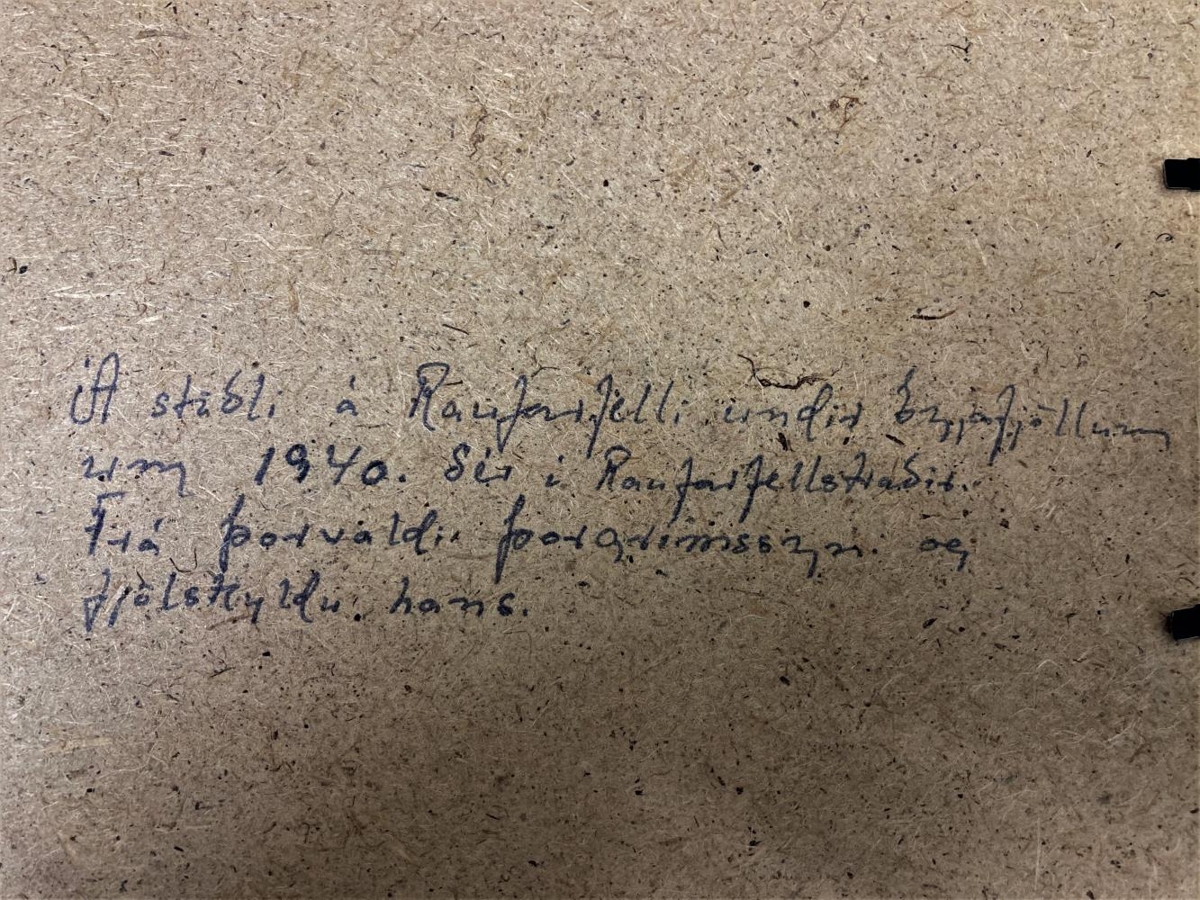 Á stöðli á Raufarfelli undir Eyjafjöllum
um 1940. Sér í Raufarfellstraðir.
Frá Þorvaldi Þorgrímssyni og
fjölskyldu hans.